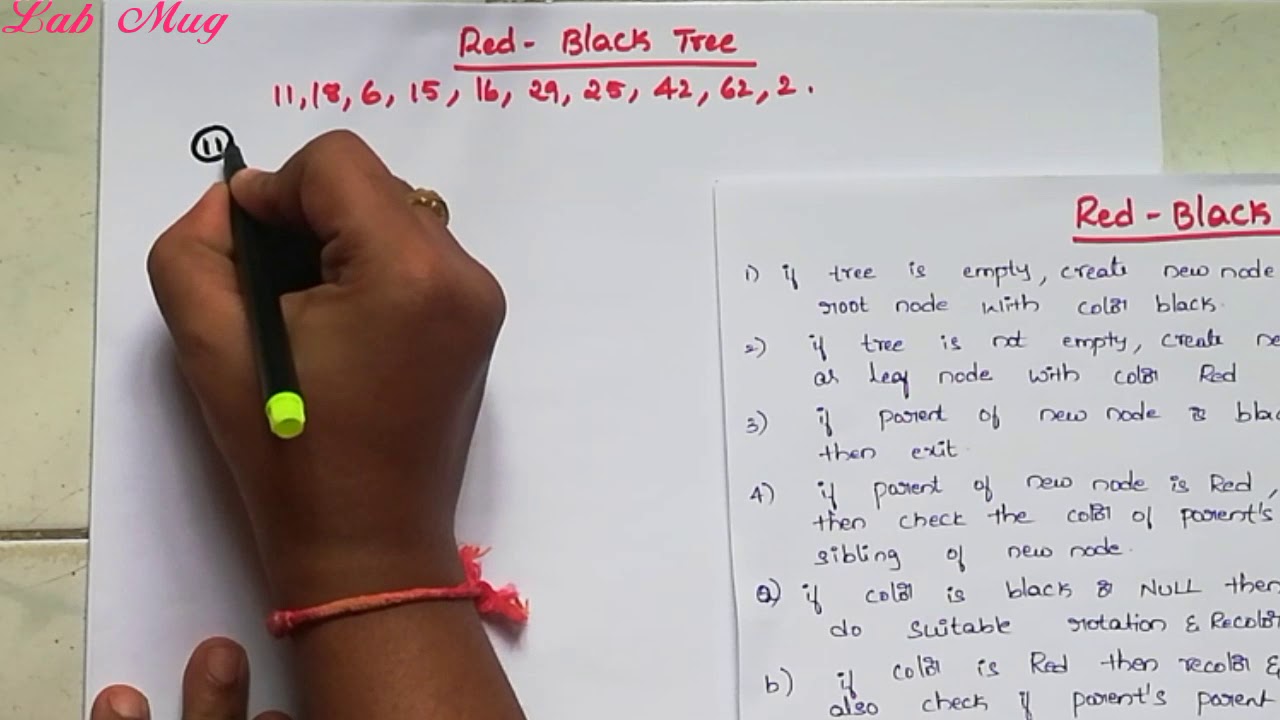 Lab Mug
Red - Black Tree
11, 18, 6, 15, 16, 29, 25, 42, 62, 2.
11
Red - Black
1) if tree is empty, create new node
root node with color black.
2) if tree is not empty, create ne
as leaf node with color Red
3) if parent of new node is blac
then exit.
4) if parent of new node is Red,
then check the color of parent's
sibling of new node.
a) if color is black & NULL then
do suitable rotation & Recolor
b) if color is Red then recolor &
also check if parent's parent